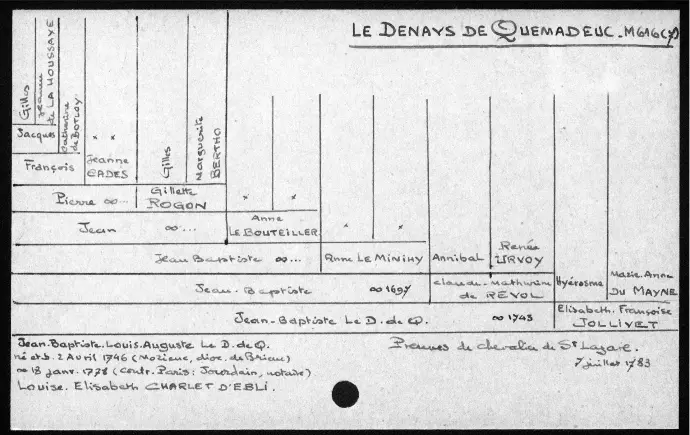 LE DENAYS DE QUEMADEUC. M616(7)
Gilles
Jeanne de LA HOUSSAYE
Jacques
Catherine de BOTLOY
x x
François
Jeanne EADES
Gilles
Marguerite BERTHO
Pierre ∞...
Gillette ROGON
x x
Jean ∞...
Anne LE BOUTEILLER
x x
Jean Baptiste ∞...
Anne LE MINIHY
Annibal
Renée URVOY
Jean-Baptiste ∞ 1697
Claude-Mathurine de REVOL
Hyérosme
Marie-Anne DU MAYNE
Jean-Baptiste Le D. de Q. ∞ 1743
Elisabeth. Françoise JOLLIVET
Jean.Baptiste.Louis.Auguste Le D. de Q.
né et b. 2 Avril 1746 (Mozieux, dioc. de Brieuc)
∞ 18 janv. 1778 (contr. Paris: Jourdain, notaire)
Louise. Elisabeth CHARLET D'EBLI.
Preuves de chevalier de St Lazare.
7 juillet 1783